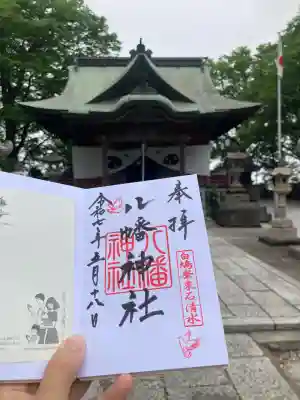 奉拝
八幡神社
八幡
神社
白鳩繁栄石清水
令和七年五月六日